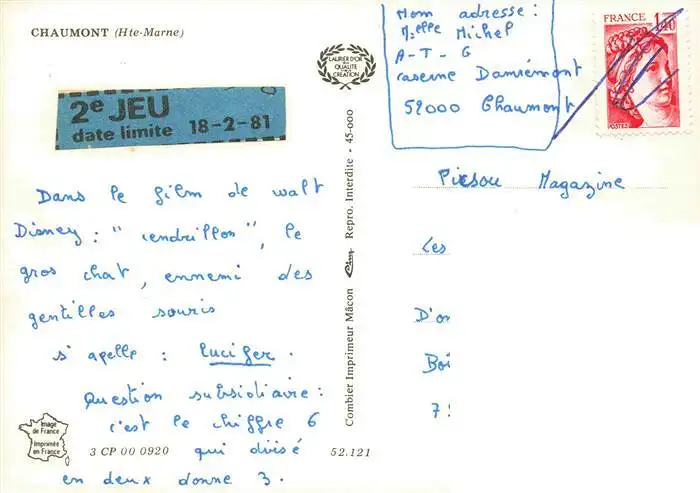 CHAUMONT (Hte-Marne)
LAURIER D'OR
DE
QUALITÉ
DE LA
CRÉATION
2e JEU
date limite 18-2-81
Dans le film de walt
Disney : "cendrillon", le
gros chat, ennemi des
gentilles souris
s'apelle : lucifer.
Question subsidiaire :
c'est le chiffre 6
qui divisé
en deux donne 3.
Image
de France
Imprimée
en France
3 CP 00 0920
52.121
Combier Imprimeur Mâcon Cim Repro. Interdite - 45-000
Mon adresse :
Melle Michel
A-T-G
caserne Damrémont
52000 Chaumont
FRANCE 1,40
POSTES
Picsou Magazine
Les
D'or
Boi